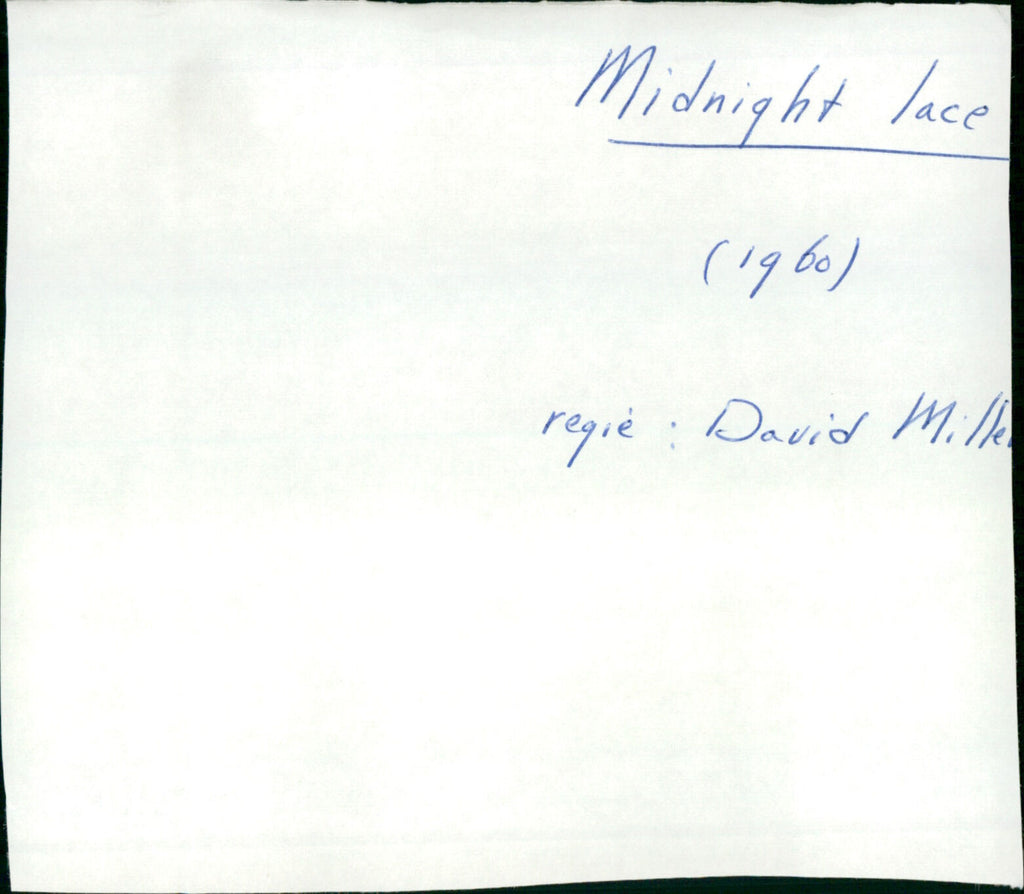 Midnight lace
(1960)
regie : David Miller